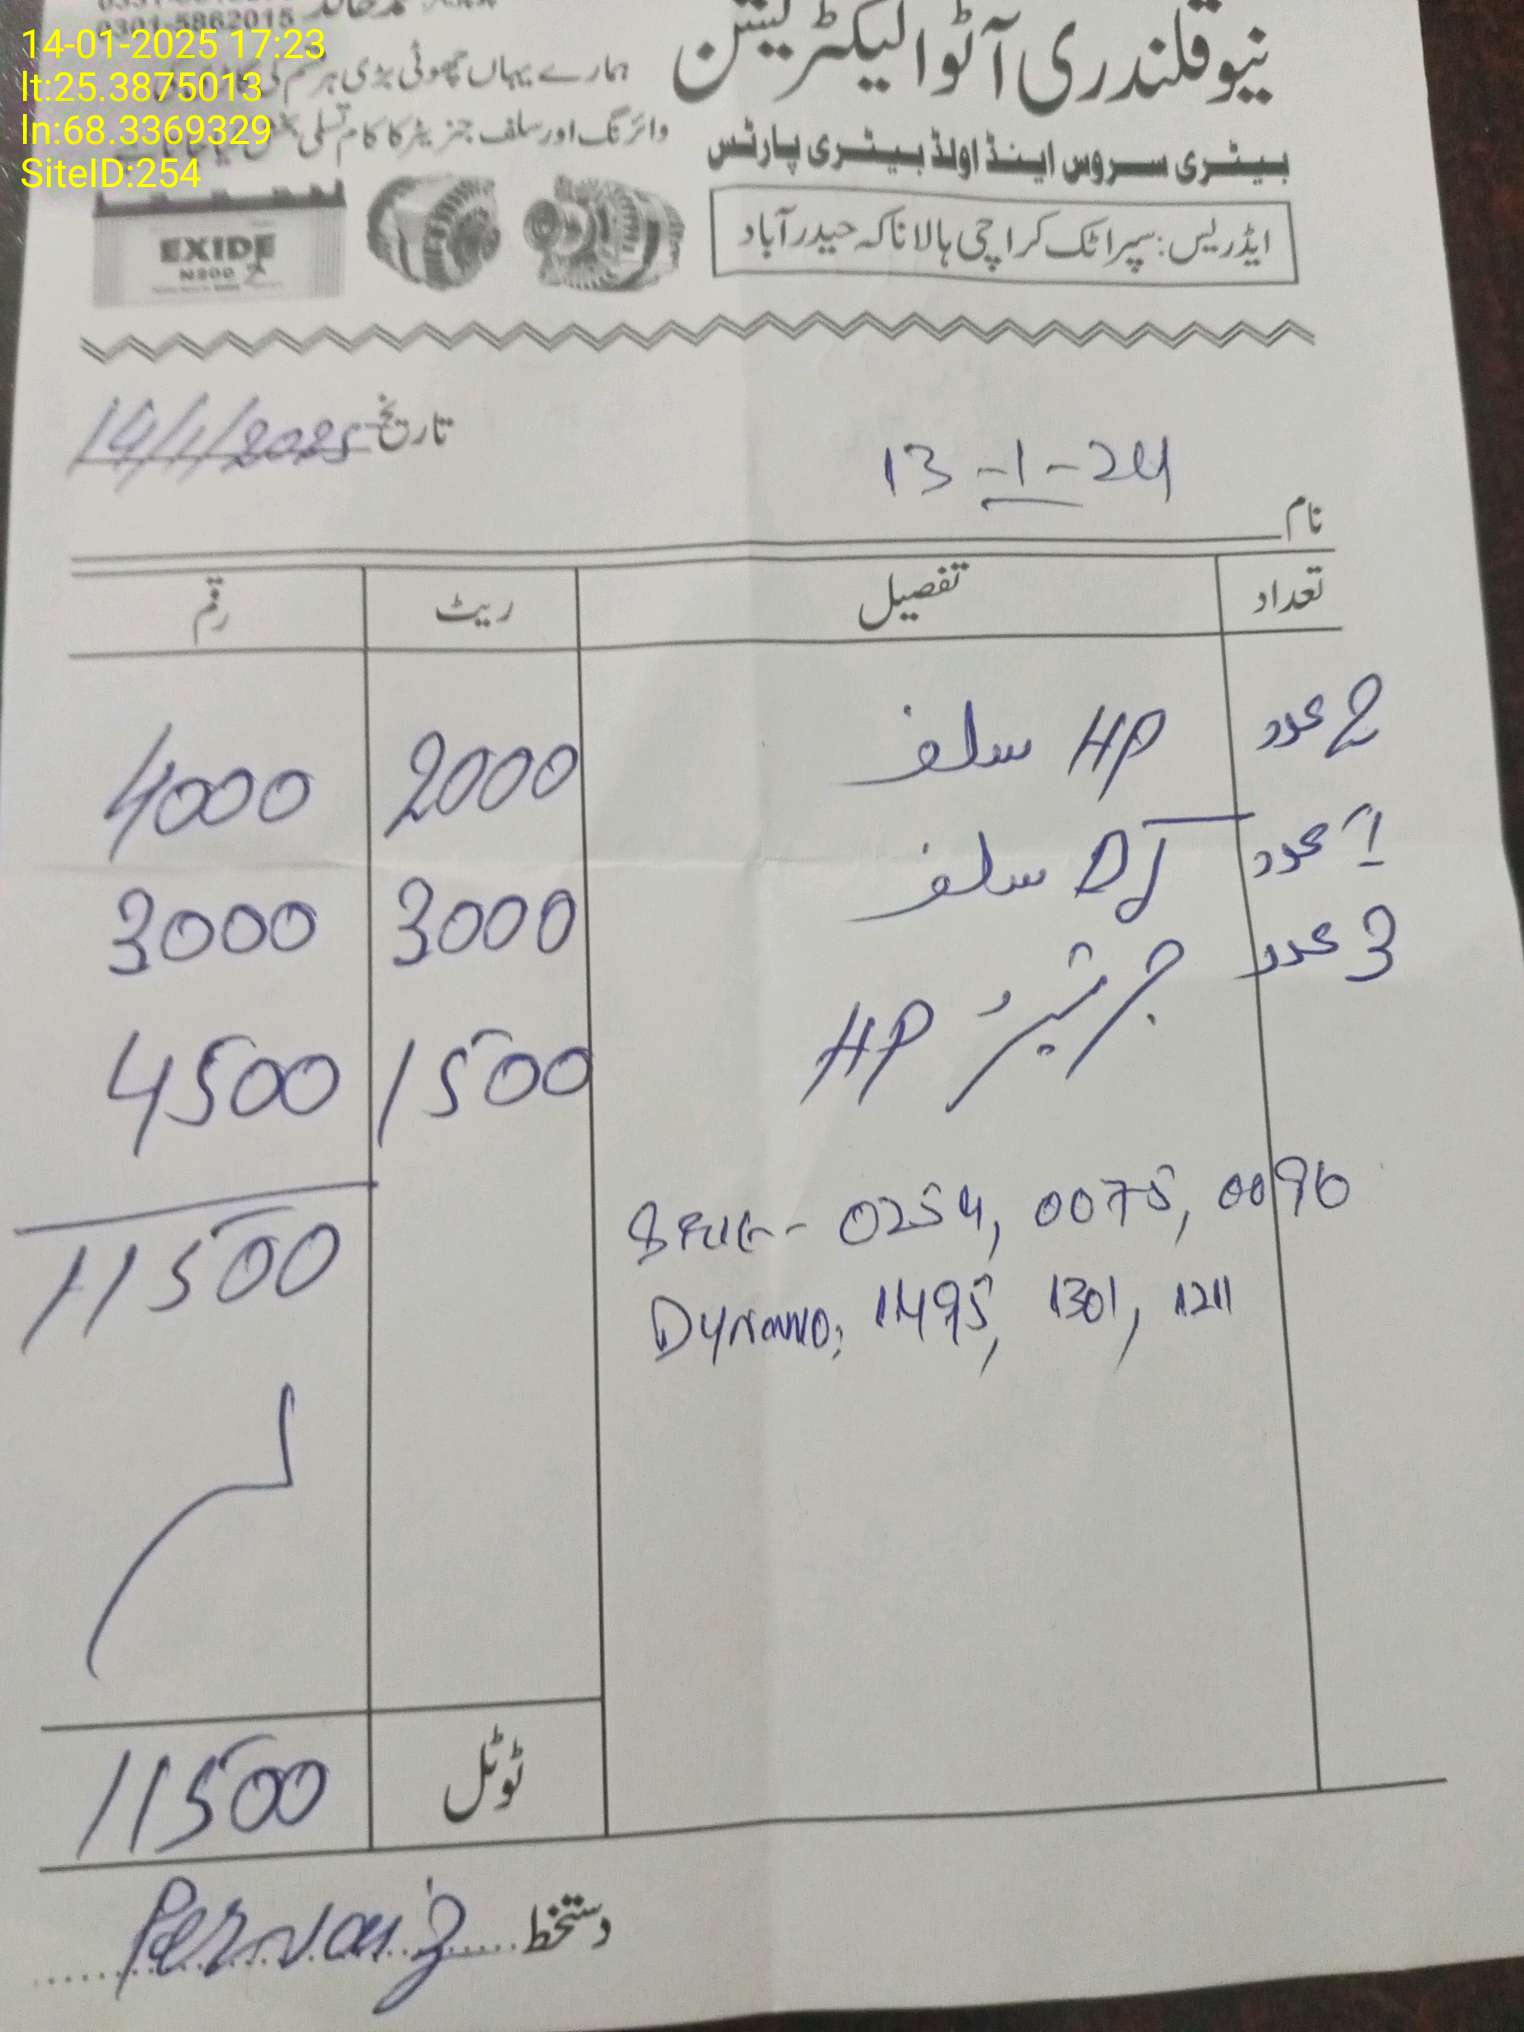 14-01-2025 17:23
lt:25.3875013
ln:68.3369329
SiteID:254
0301-5862015
نیو قلندری آٹو الیکٹریشن
ہمارے یہاں چھوٹی بڑی ہر قسم کی
وائرنگ اور سلف جنریٹر کا کام تسلی
بیٹری سروس اینڈ اولڈ بیٹری پارٹس
ایڈریس: سپر اٹک کراچی ہالا ناکہ حیدرآباد
EXIDE
N200 Z
13-1-24
تاریخ 14/1/2025
نام
تعداد تفصیل ریٹ رقم
2 عدد HP سلف 2000 4000
1 عدد DJ سلف 3000 3000
3 عدد جرنیٹر HP 1500 4500
11500
0254, 0075, 0096
Dynamo: 1495, 1301, 1211
ٹوٹل 11500
دستخط Pervaiz